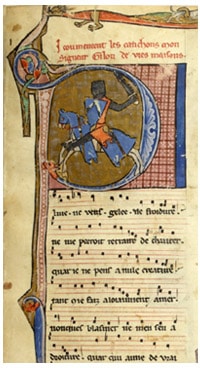 I coumencent les canchons mon
signeur Gilon de vies maisons.
Pluie · ne vens · gelee · ne froidure ·
ne me porroit retraire de chanter ·
quar ie ne pens a nule creature ·
tant ie faz a loiaument amer ·
nonques blasmer ne men seu a
droiture · quar qui aime de vrai